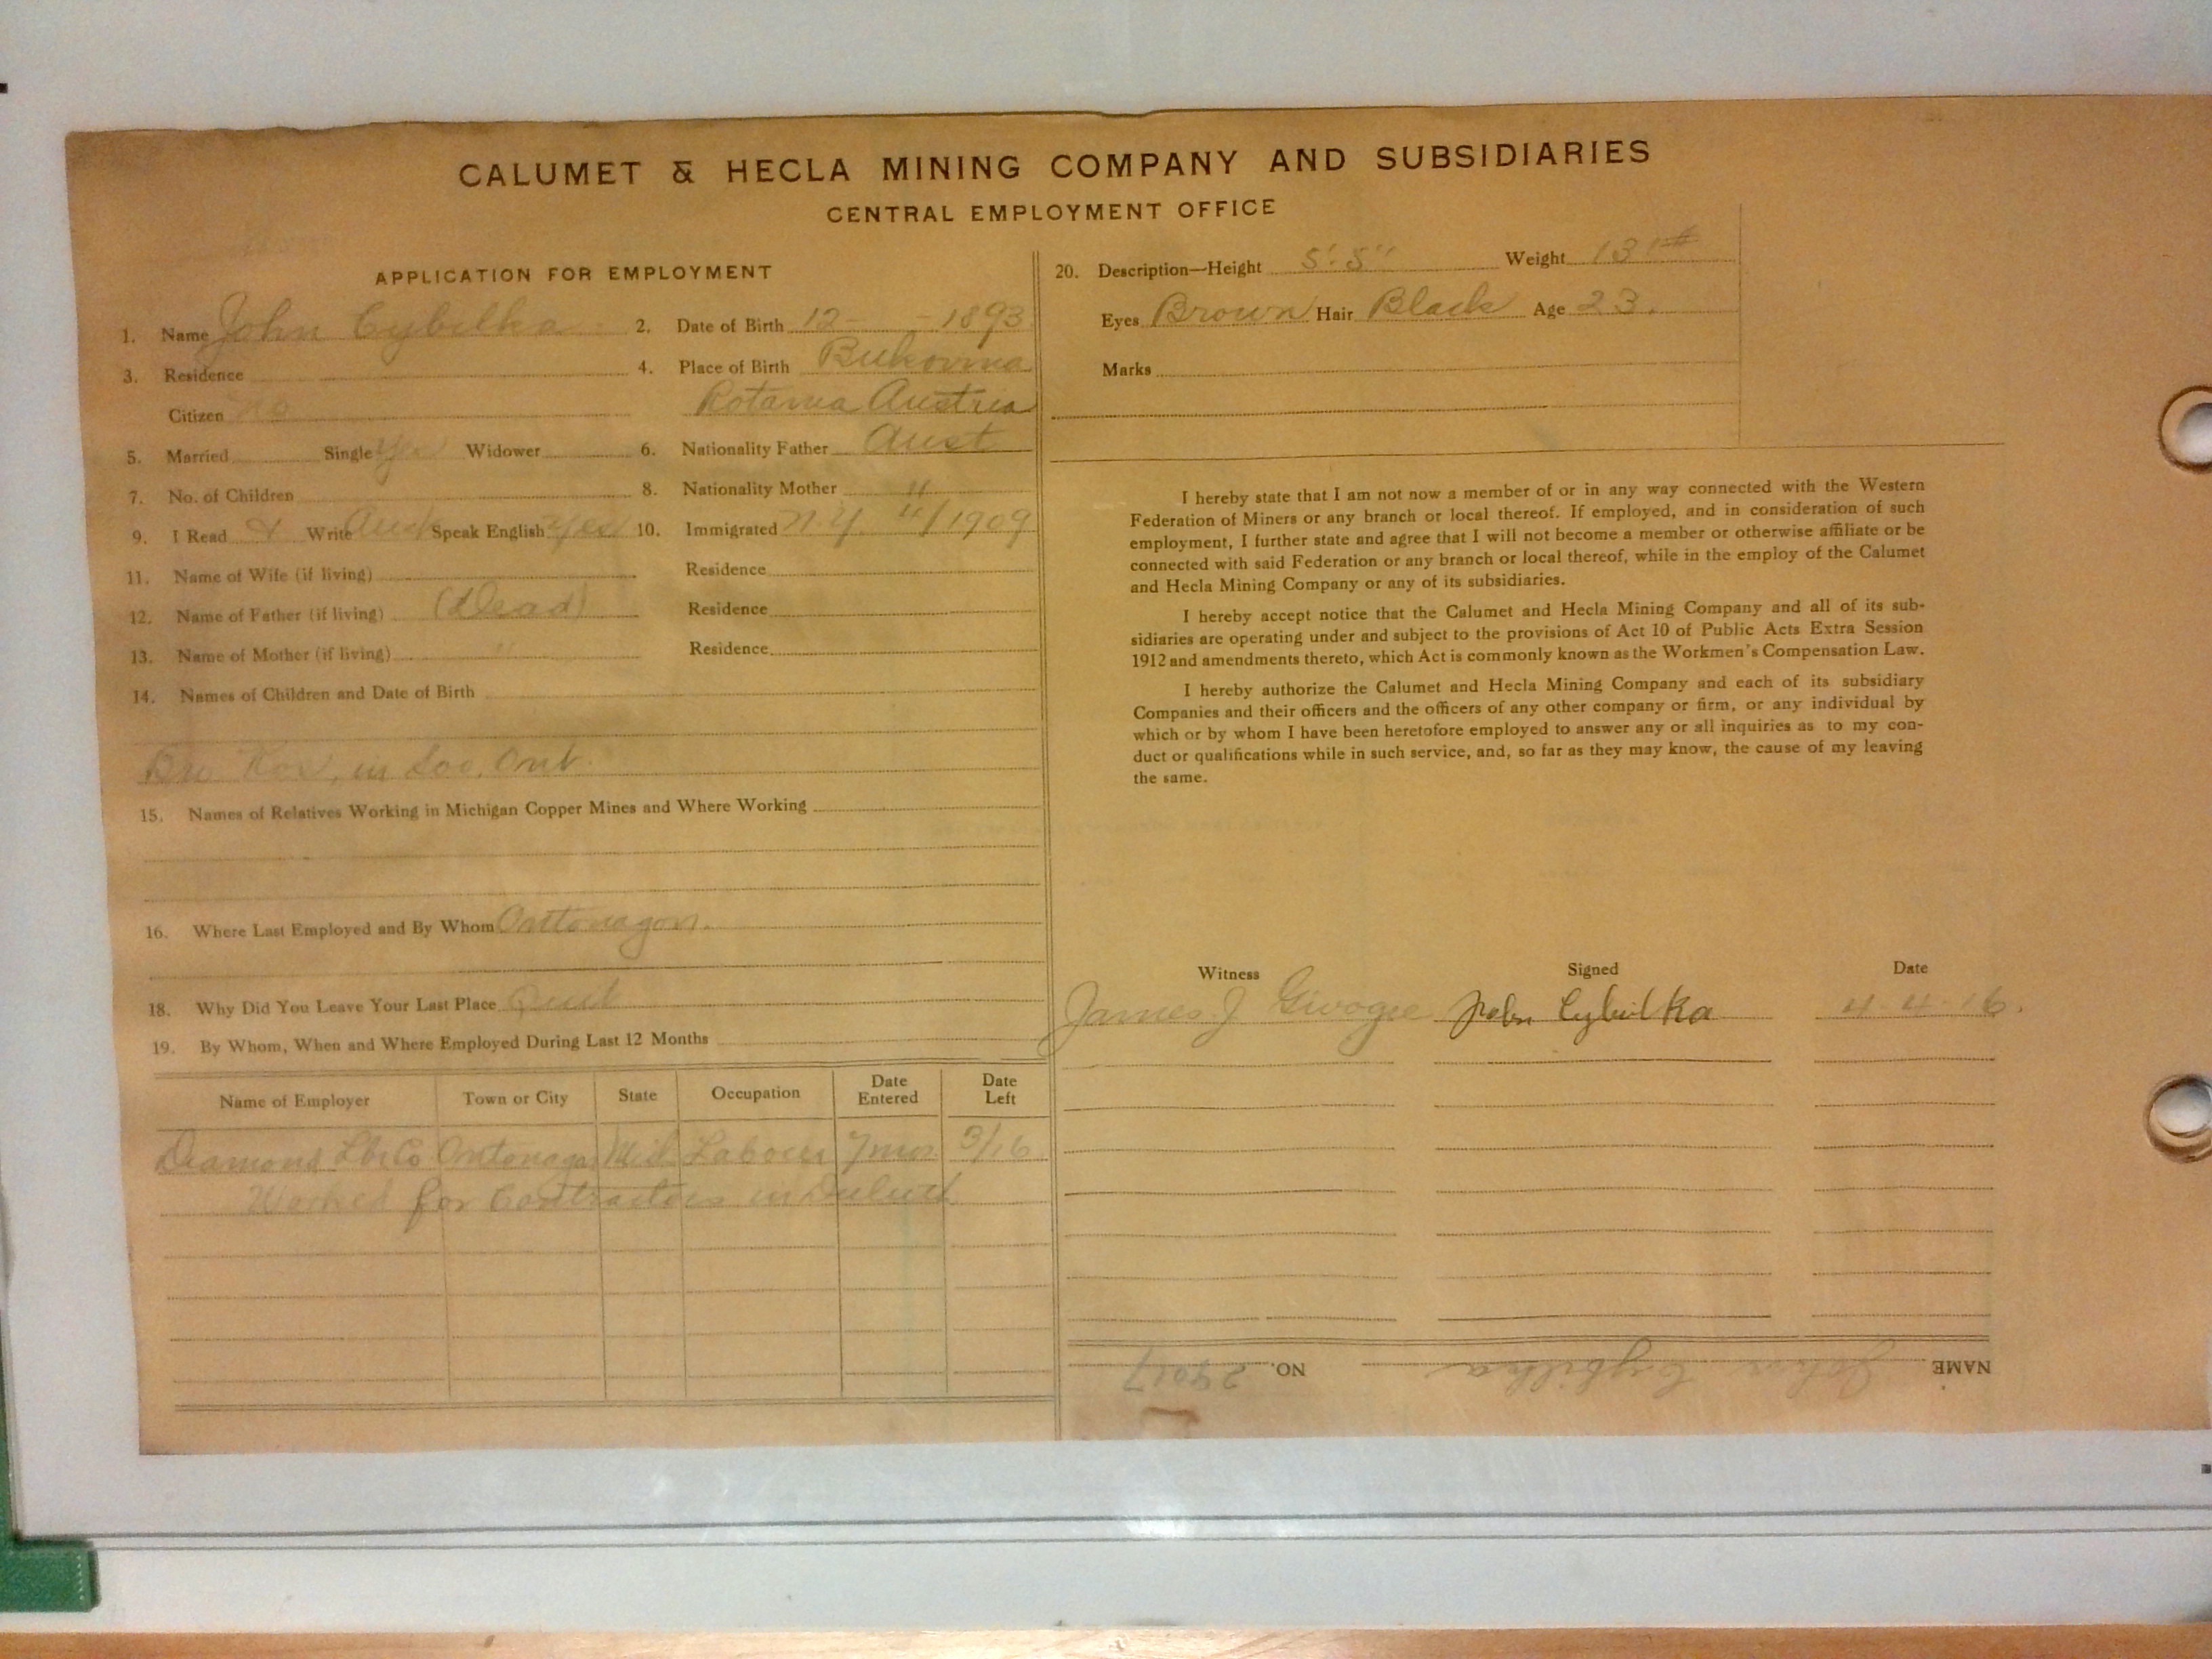 CALUMET & HECLA MINING COMPANY AND SUBSIDIARIES
CENTRAL EMPLOYMENT OFFICE
APPLICATION FOR EMPLOYMENT
1. Name John Cybilka 2. Date of Birth 12 - 1893
3. Residence 4. Place of Birth Bukovina
Citizen No Austria
5. Married Single Yes Widower 6. Nationality Father Aust
7. No. of Children 8. Nationality Mother "
9. I Read & Write Aust Speak English Yes 10. Immigrated N.Y. 4/1909
11. Name of Wife (if living) Residence
12. Name of Father (if living) (Dead) Residence
13. Name of Mother (if living) " Residence
14. Names of Children and Date of Birth
Bro in Soo, Ont.
15. Names of Relatives Working in Michigan Copper Mines and Where Working
16. Where Last Employed and By Whom Ontonagon.
18. Why Did You Leave Your Last Place Quit
19. By Whom, When and Where Employed During Last 12 Months
Name of Employer Town or City State Occupation Date Entered Date Left
Diamond Lbr Co Ontonagon Mich Labour 7 mos 3/16
Worked for Contractors in Duluth
20. Description—Height 5' 5" Weight
Eyes Brown Hair Black Age 23.
Marks
I hereby state that I am not now a member of or in any way connected with the Western
Federation of Miners or any branch or local thereof. If employed, and in consideration of such
employment, I further state and agree that I will not become a member or otherwise affiliate or be
connected with said Federation or any branch or local thereof, while in the employ of the Calumet
and Hecla Mining Company or any of its subsidiaries.
I hereby accept notice that the Calumet and Hecla Mining Company and all of its sub-
sidiaries are operating under and subject to the provisions of Act 10 of Public Acts Extra Session
1912 and amendments thereto, which Act is commonly known as the Workmen's Compensation Law.
I hereby authorize the Calumet and Hecla Mining Company and each of its subsidiary
Companies and their officers and the officers of any other company or firm, or any individual by
which or by whom I have been heretofore employed to answer any or all inquiries as to my con-
duct or qualifications while in such service, and, so far as they may know, the cause of my leaving
the same.
Witness Signed Date
James J John Cybulka 4-4-16.
NAME John Cybilka NO.